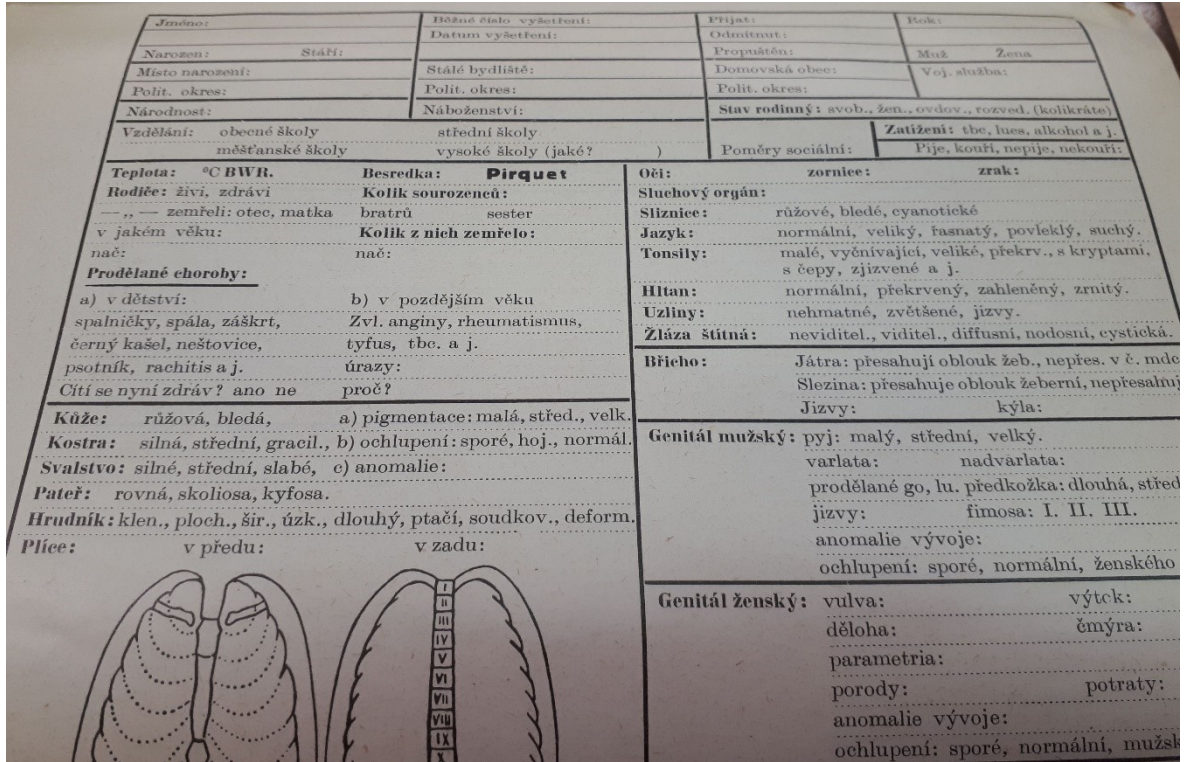 Jméno: Běžné číslo vyšetření: Přijat: Rok:
Datum vyšetření: Odmítnut:
Narozen: Stáří: Propuštěn: Muž Žena
Místo narození: Stálé bydliště: Domovská obec: Voj. služba:
Polit. okres: Polit. okres: Polit. okres:
Národnost: Náboženství: Stav rodinný: svob., žen., ovdov., rozved. (kolikráte)
Vzdělání: obecné školy střední školy Zatížení: tbc, lues, alkohol a j.
měšťanské školy vysoké školy (jaké? ) Poměry sociální: Pije, kouří, nepije, nekouří:
Teplota: °C BWR. Besredka: Pirquet
Rodiče: živi, zdrávi Kolik sourozenců:
— „ — zemřeli: otec, matka bratrů sester
v jakém věku: Kolik z nich zemřelo:
nač: nač:
Prodělané choroby:
a) v dětství: b) v pozdějším věku
spalničky, spála, záškrt, Zvl. anginy, rheumatismus,
černý kašel, neštovice, tyfus, tbc. a j.
psotník, rachitis a j. úrazy:
Cítí se nyní zdráv? ano ne proč?
Kůže: růžová, bledá, a) pigmentace: malá, střed., velk.
Kostra: silná, střední, gracil., b) ochlupení: sporé, hoj., normál.
Svalstvo: silné, střední, slabé, c) anomalie:
Pateř: rovná, skoliosa, kyfosa.
Hrudník: klen., ploch., šir., úzk., dlouhý, ptačí, soudkov., deform.
Plíce: v předu: v zadu:
I
II
III
IV
V
VI
VII
VIII
IX
X
Oči: zornice: zrak:
Sluchový orgán:
Sliznice: růžové, bledé, cyanotické
Jazyk: normální, veliký, řasnatý, povleklý, suchý.
Tonsily: malé, vyčnívající, veliké, překrv., s kryptami,
s čepy, zjizvené a j.
Hltan: normální, překrvený, zahleněný, zrnitý.
Uzliny: nehmatné, zvětšené, jizvy.
Žláza štítná: neviditel., viditel., diffusní, nodosní, cystická.
Břicho: Játra: přesahují oblouk žeb., nepřes. v č. mdc
Slezina: přesahuje oblouk žeberní, nepřesahuj
Jizvy: kýla:
Genitál mužský: pyj: malý, střední, velký.
varlata: nadvarlata:
prodělané go, lu. předkožka: dlouhá, střed
jizvy: fimosa: I. II. III.
anomalie vývoje:
ochlupení: sporé, normální, ženského
Genitál ženský: vulva: výtok:
děloha: čmýra:
parametria:
porody: potraty:
anomalie vývoje:
ochlupení: sporé, normální, mužsk